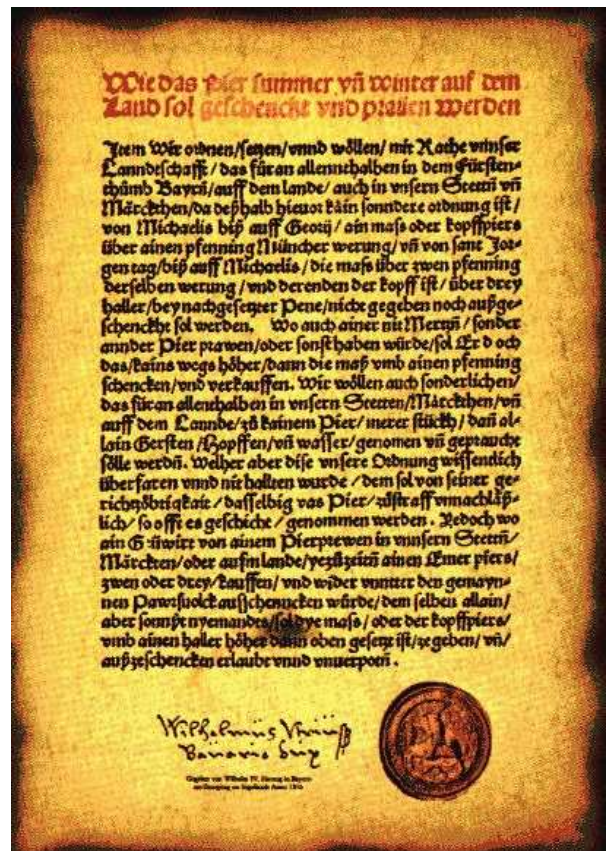 Wie das Pier summer vñ winter auf dem
Land sol geschenckt vnd prauen werden
Item Wir ordnen/setzen/vnnd wöllen/mit Rathe vnnser
Lanndtschafft/das füran allennthalben in dem Fürsten-
thumb Bayrñ/auff dem lande/auch in vnsern Stettñ vñ
Märckthen/da deßhalb hieuor kain sonndere ordnung ist/
von Michaelis biß auff Georij/ain mass oder kopffpiers
über ainen pfenning Müncher werung/vñ von sant Jor-
gen tag/biß auff Michaelis/die mass über zwen pfenning
derselben werung/vnd derenden der kopff ist/über drey
haller/bey nachgesetzter Pene/nicht gegeben noch außge-
schenckht sol werden. Wo auch ainer nit Mertzñ/sonder
annder Pier prawen/oder sonst haben würde/sol Er doch
das/kains wegs höher/dann die maß vmb ainen pfenning
schencken/vnd verkauffen. Wir wöllen auch sonderlichen/
das füran allenthalben in vnsern Stetten/Märckthen/vñ
auff dem Lannde/zů kainem Pier/merer stückh/dañ al-
lain Gersten/Hopffen/vñ wasser/genomen vñ gepraucht
sölle werdñ. Welher aber dise vnsere Ordnung wissendlich
überfaren vnnd nit hallten wurde/dem sol von seiner ge-
richtzöbrigkait/dasselbig vas Pier/zůstraff vnnachläß-
lich/so offt es geschicht/genommen werden. Yedoch wo
ain Gäuwirt von ainem Pierprewen in vnnsern Stettñ/
Märckten/oder aufm lande/yezůzeitñ ainen Emer piers/
zwen oder drey/kauffen/vnd wider vnntter den gemayn-
nen Pawrsuolck ausschenncken würde/dem selben allain/
aber sonnst nyemandts/sol dye mass/oder der kopffpiers/
vmb ainen haller höher dann oben gesetzt ist/zegeben/vñ/
außzeschencken erlaubt vnnd vnuerpotñ.
Wilhelmus
Gegeben von Wilhelm IV. Herzog in Bayern